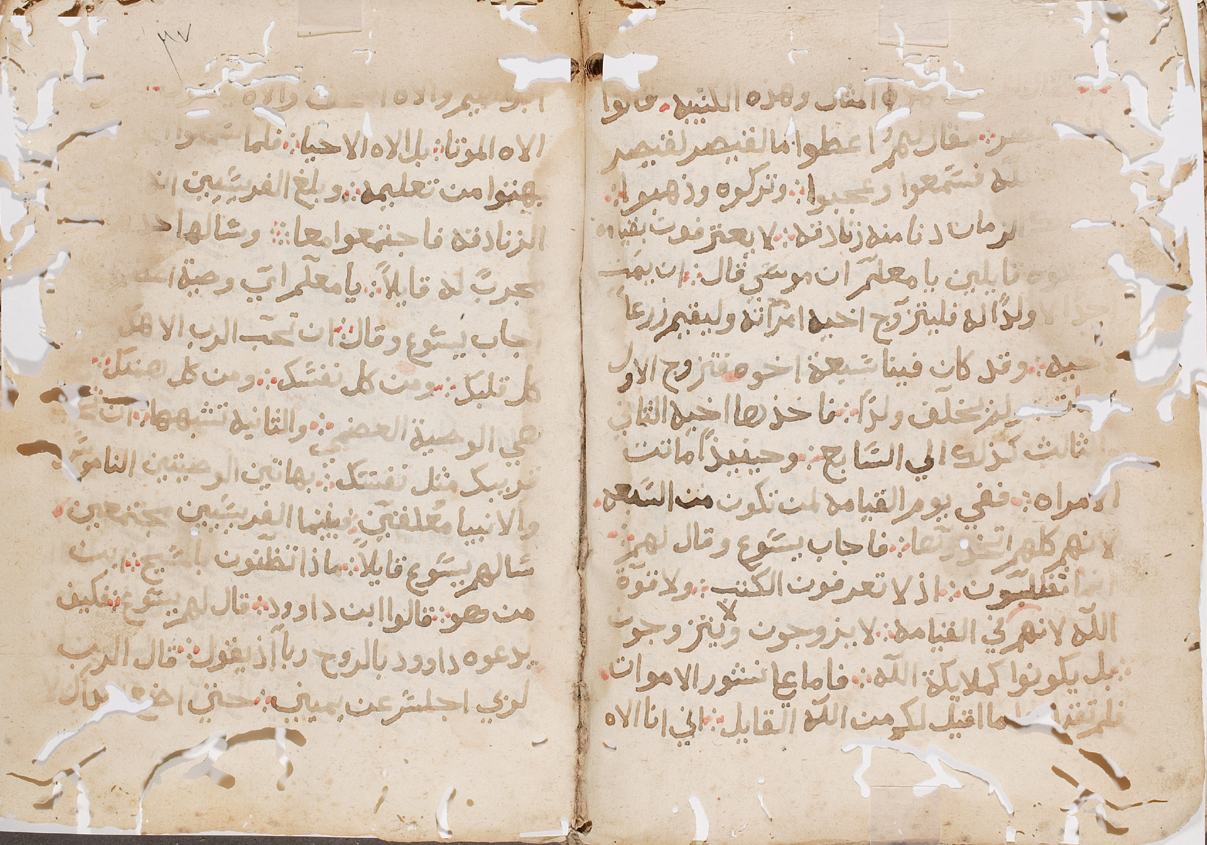 هذه المثال وهذه الكتيبه ⁘ قالوا
لقيصر ⁘ فقال لهم اعطوا ما لقيصر لقيصر
لله فسمعوا وعجبوا ⁘ وتركوه وذهبوا ⁘
الزمان دنا منه زنادقه ⁘ لا يعترفوت بقيامه
قايلين يا معلم ان موسي قال ⁘ ان يمت
ولداً انه فليتزوج اخيه امراته وليقيم زرعاً
⁘ وقد كان فينا سبعة اخوه فتزوج الاول
ولم يخلف ولداً ⁘ فاخذها اخيه الثاني
الثالث كذلك الي السابع ⁘ وحينيذاً ماتت
الامراه ⁘ ففي يوم القيامه لمن تكون من السبعه
لانهم كلهم اتخذوتها ⁘ فاجاب يسوع وقال لهم ⁘
انما تظلون ⁘ اذ لا تعرفون الكتب ⁘ ولا قوة
الله لانهم في القيامه ⁘ لا يزوجون ولا يتزوجون
⁘ بل يكونوا كملايكة الله ⁘ فاما علي نشور الاموات
فلم تقراوا ما اقيل لكم من الله القايل ⁘ اني انا الاه
٩٧
ابراهيم والاه والاه
الاه الموتا ⁘ بل الاه الاحيا ⁘ فلما سمعوا
بهتوا من تعليمه ⁘ وبلغ الفريسيين
الزنادقه فاجتمعوا معا ⁘ وسالها
مجرب له قايلاً ⁘ يا معلم اي وصية
اجاب يسوع وقال ⁘ ان تحب الرب الاهك
كل قلبك ⁘ ومن كل نفسك ⁘ ومن كل
هي الوصية العضمي ⁘ والثانيه تشبهها ⁘ ان تحب
قريبك مثل نفسك ⁘ بهاتين الوصيتين الناموس
والانبيا معلقين ⁘ وبينما الفريسيين مجتمعين ⁘
سالهم يسوع قايلاً ⁘ ماذا تظنون بالمسيح ⁘ ابن
من هو ⁘ قالوا ابن داوود ⁘ قال لهم يسوع ⁘ فكيف
يدعوه داوود بالروح رباً اذ يقول ⁘ قال الرب
لربي اجلس عن يميني ⁘ حتي اضع